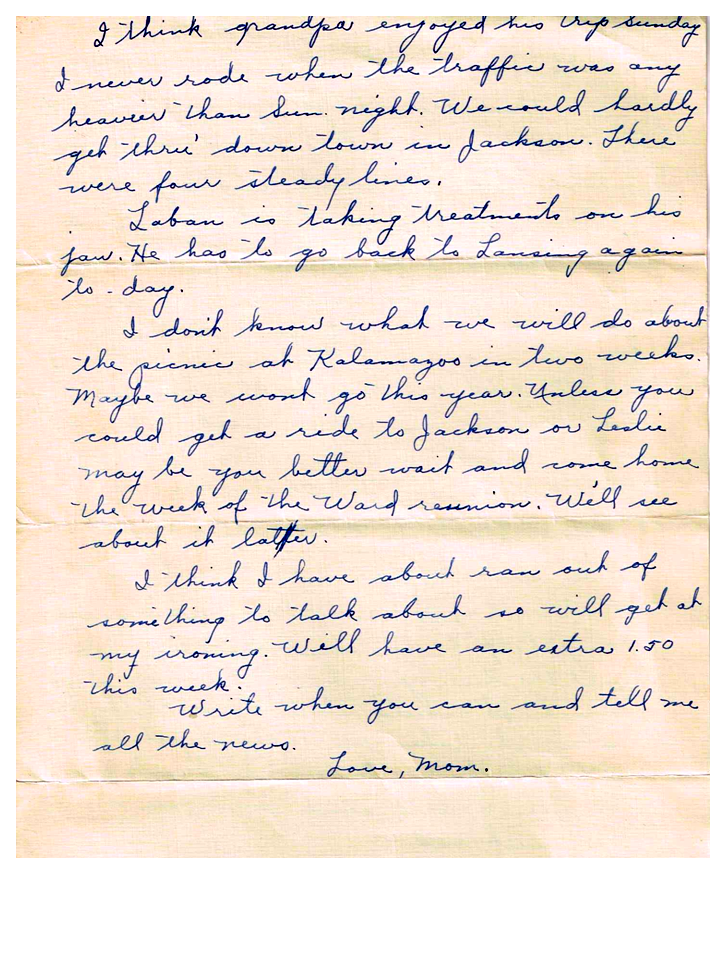 I think grandpa enjoyed his trip Sunday
I never rode when the traffic was any
heavier than Sun. night. We could hardly
get thru' down town in Jackson. There
were four steady lines.
Laban is taking treatments on his
jaw. He has to go back to Lansing again
to-day.
I don't know what we will do about
the picnic at Kalamazoo in two weeks.
Maybe we wont go this year. Unless you
could get a ride to Jackson or Leslie
may be you better wait and come home
the week of the Ward reunion. We'll see
about it latter.
I think I have about ran out of
something to talk about so will get at
my ironing. Will have an extra 1.50
this week.
Write when you can and tell me
all the news.
Love, Mom.